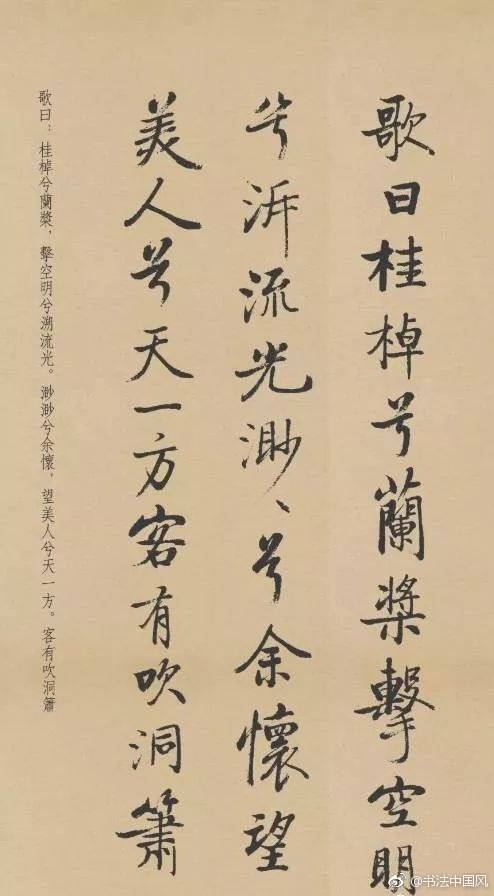 歌曰桂棹兮蘭槳擊空明
兮泝流光渺、兮余懷望
美人兮天一方客有吹洞簫
歌曰：桂棹兮蘭槳，擊空明兮溯流光。渺渺兮余懷，望美人兮天一方。客有吹洞簫
@书法中国风